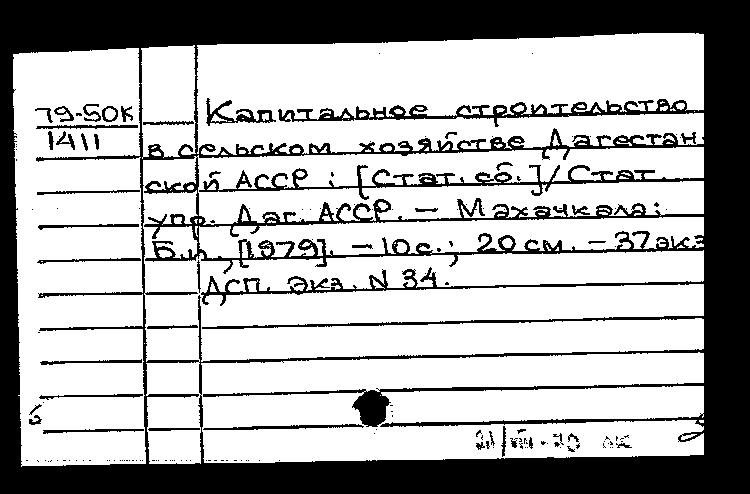 79-50к Капитальное строительство
1411 в сельском хозяйстве Дагестан-
ской АССР : [Стат. сб.]/Стат.
упр. Даг. АССР. – Махачкала:
Б.и., [1979]. – 10 с.; 20 см. – 37 экз
ДСП. Экз. N 34.